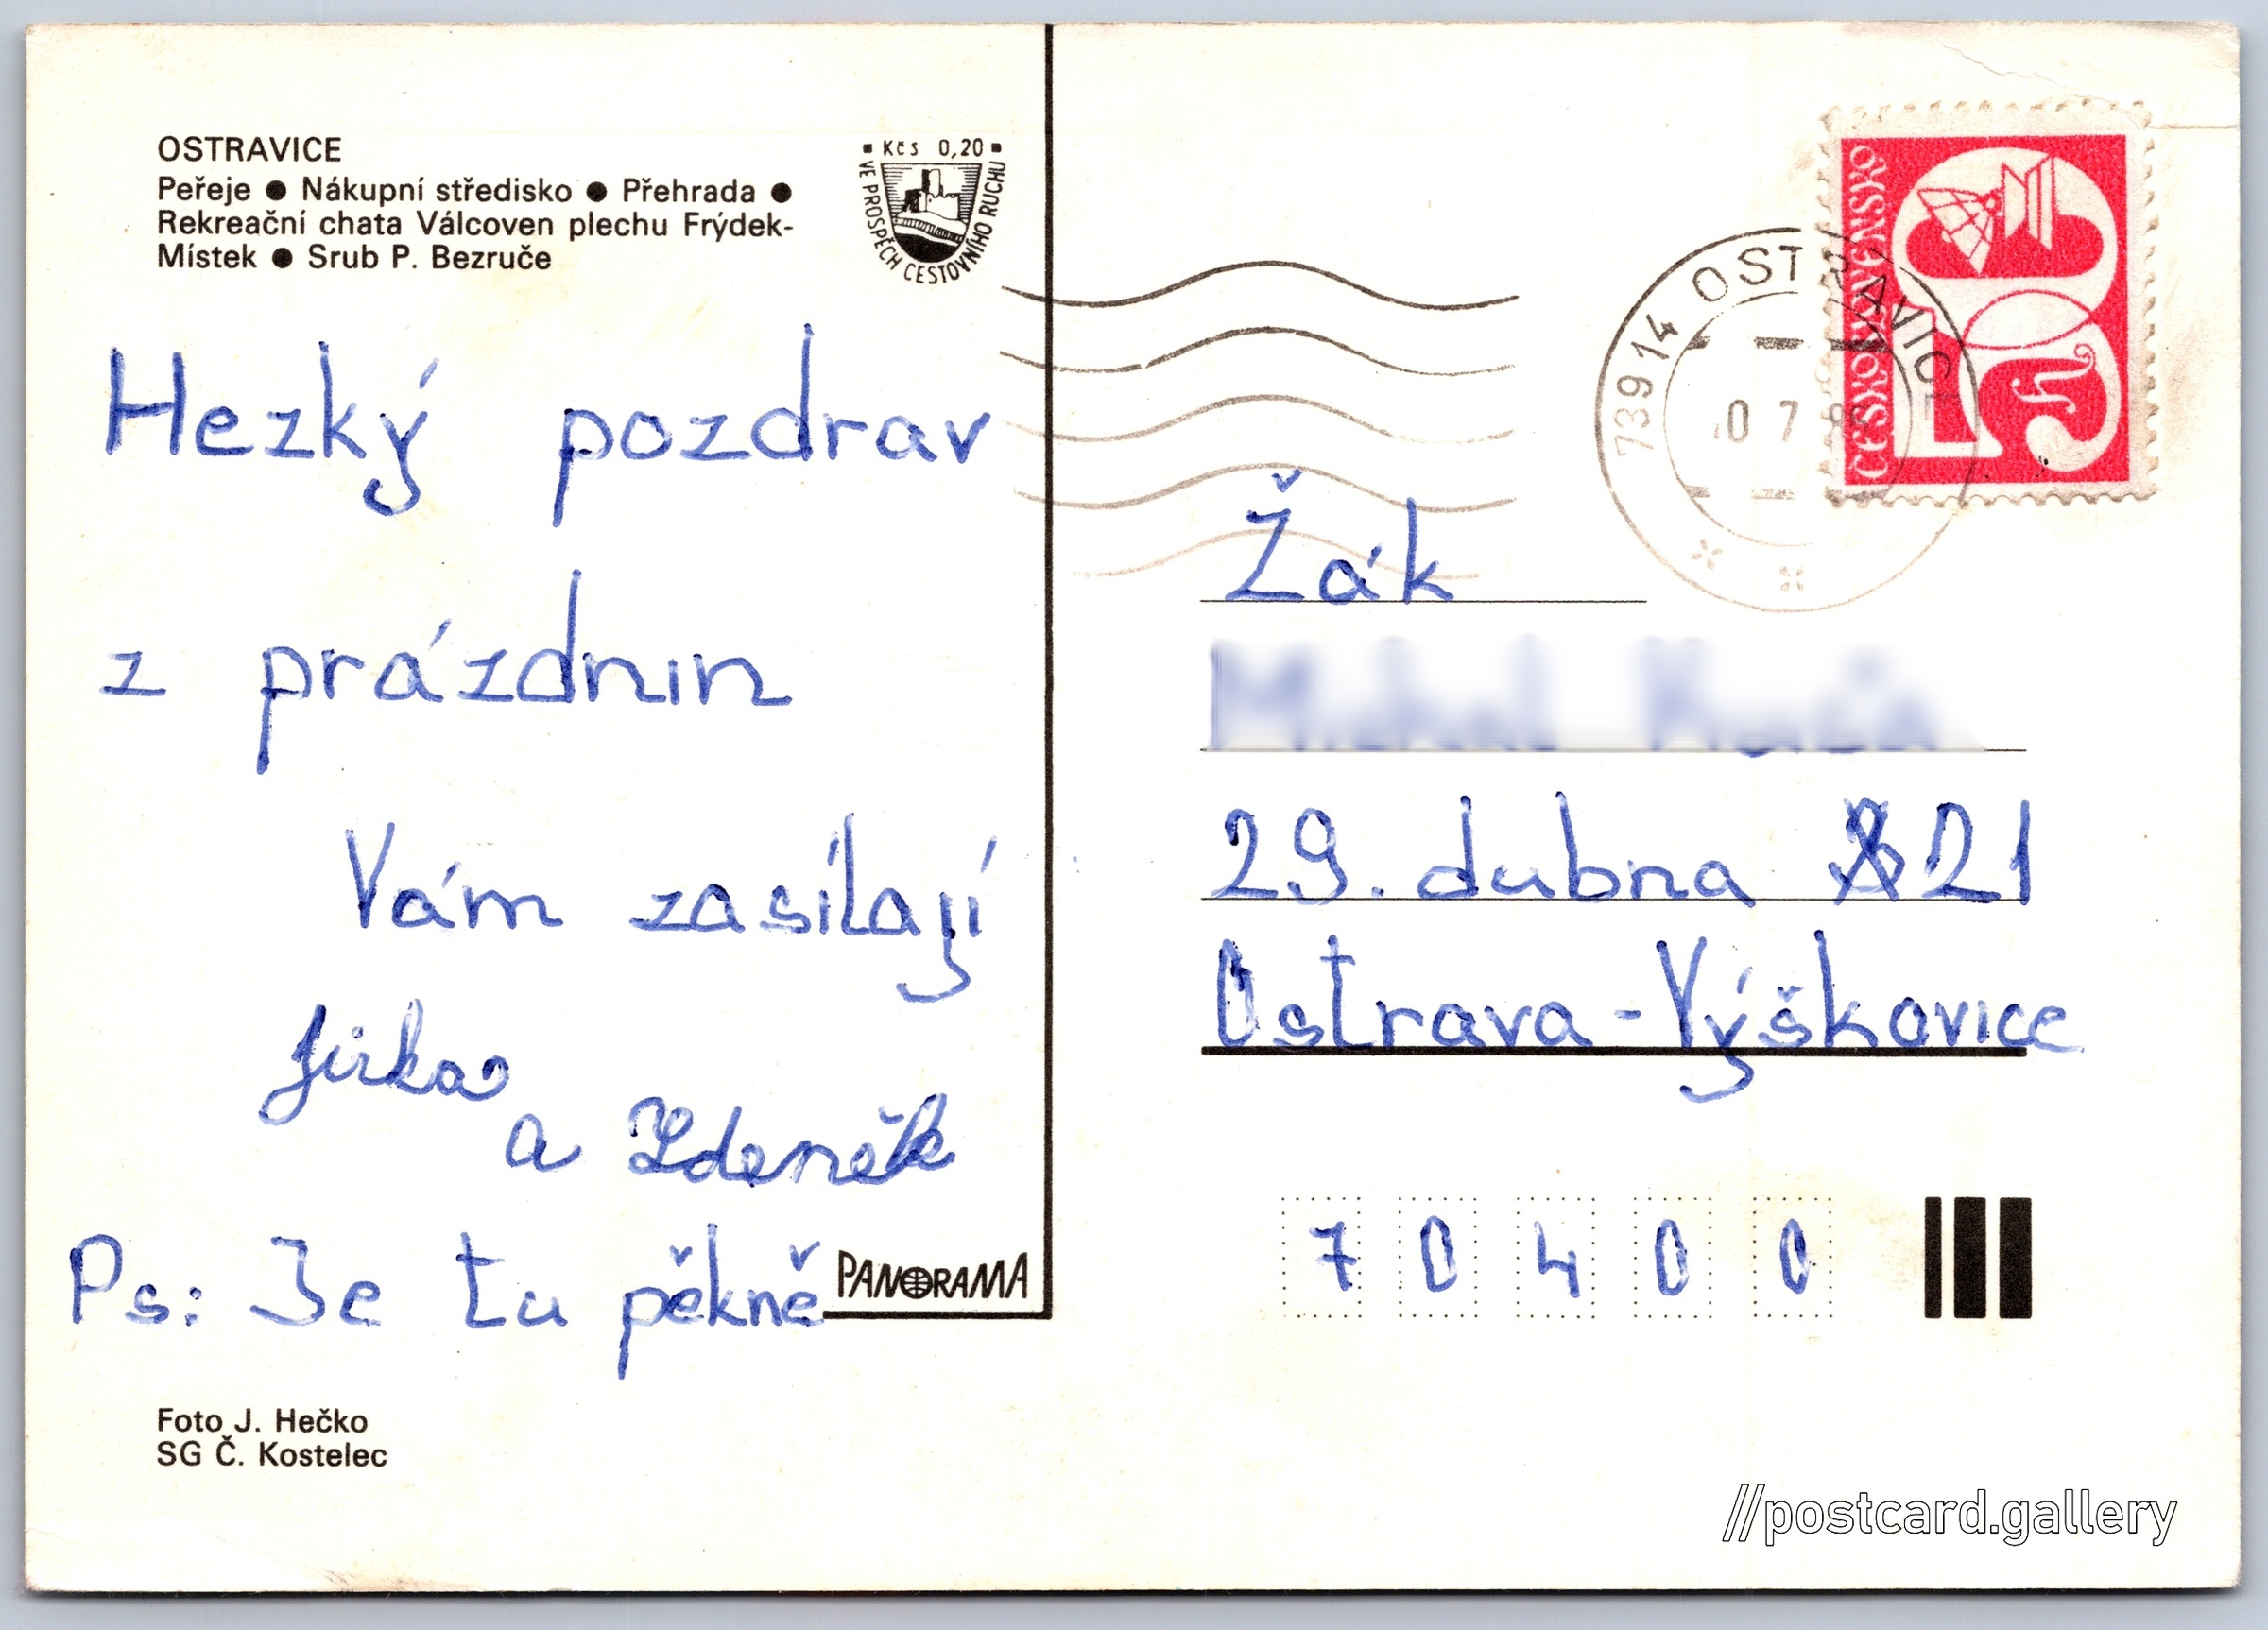 OSTRAVICE
Peřeje ● Nákupní středisko ● Přehrada ●
Rekreační chata Válcoven plechu Frýdek-
Místek ● Srub P. Bezruče
Kčs 0,20
VE PROSPĚCH CESTOVNÍHO RUCHU
Hezký pozdrav
z prázdnin
Vám zasílají
Jirka
a Zdeněk
Ps: Je tu pěkně
PANORAMA
Foto J. Hečko
SG Č. Kostelec
ČESKOSLOVENSKO
50 h
739 14 OSTRAVICE
Žák
29. dubna 21
Ostrava-Výškovice
70400
//postcard.gallery